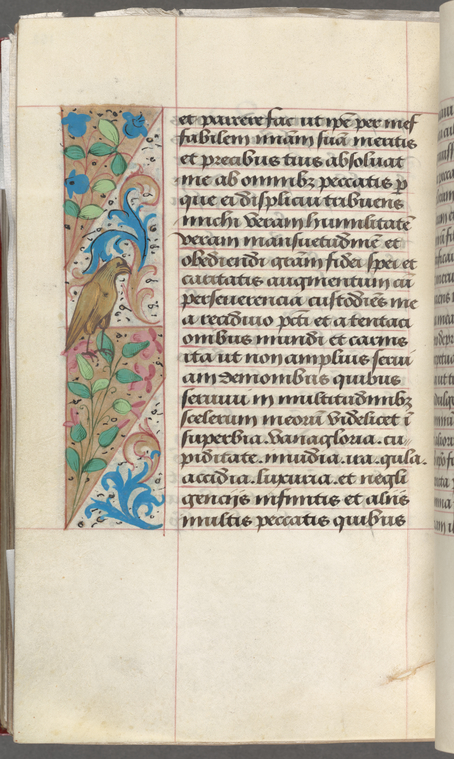 et parere fac ut ipe per inef
fabilem miam suã meritis
et precibus tuis absoluat
me ab omnibz peccatis p
que ei displicui tribuens
michi veram humilitatẽ
veram mansuetudinẽ et
obediendi grãm fidei spei et
caritatis augmentum ai
perseverencia custodies me
a recidiuo pcti et a tentaci
onibus mundi et carnis
ita ut non amplius serui
am demonibus quibus
seruiui in multitudinibz
scelerum meorũ videlicet ĩ
superbia. vanagloria. cu
piditate. inuidia. ira. gula.
accidia. luxuria. et negli
gencijs infinitis et aliis
multis peccatis quibus